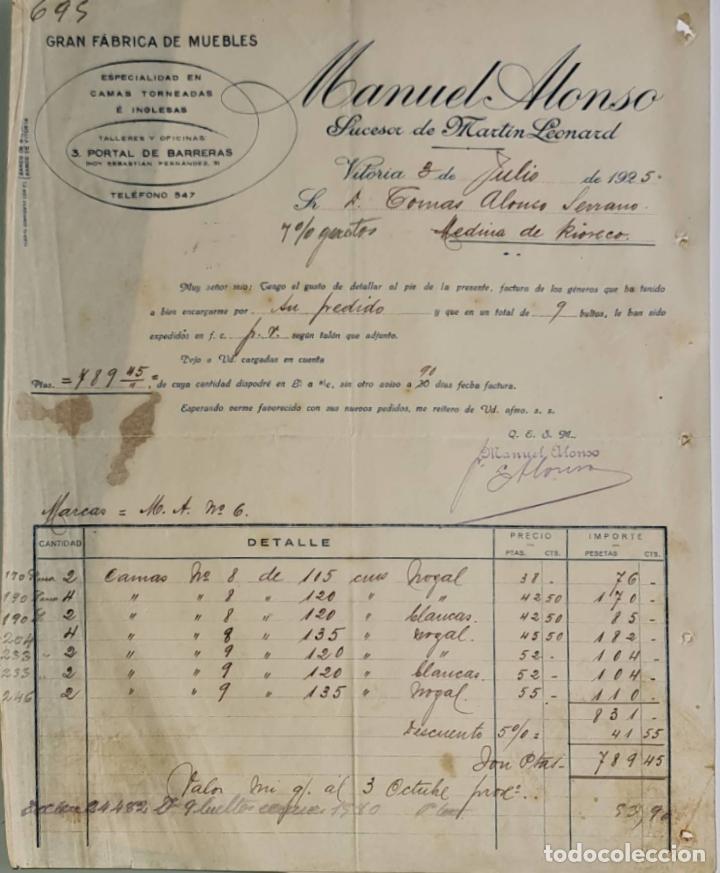 695
GRAN FÁBRICA DE MUEBLES
ESPECIALIDAD EN
CAMAS TORNEADAS
É INGLESAS
TALLERES Y OFICINAS:
3. PORTAL DE BARRERAS
(HOY SEBASTIAN FERNANDEZ, 3)
TELÉFONO 547
Manuel Alonso
Sucesor de Martín Leonard
Vitoria 3 de Julio de 1925.
Sr. D. Tomas Alonso Serrano.
Medina de Rioseco.
7%
Muy señor mío: Tengo el gusto de detallar al pie de la presente, factura de los géneros que ha tenido
a bien encargarme por su pedido y que en un total de 9 bultos, le han sido
expedidos en f. c. p. v. según talón que adjunto.
Dejo a Vd. cargadas en cuenta
90
Ptas. =789 45= de cuya cantidad dispondré en L/ a m/c, sin otro aviso a 30 días fecha factura.
Esperando verme favorecido con sus nuevos pedidos, me reitero de Vd. afmo. s. s.
Q. E. S. M.,
Manuel Alonso
Marcas = M. A. Nº 6.
CANTIDAD DETALLE PRECIO IMPORTE
PTAS. CTS. PESETAS CTS.
190 2 Camas Nº 8 de 105 cms Nogal 38 - 76 -
190 4 " " 8 " 120 " " 42 50 170 -
190 2 " " 8 " 120 " blancas 42 50 85 -
204 4 " " 8 " 135 " nogal 45 50 182 -
233 2 " " 9 " 120 " " 52 - 104 -
233 2 " " 9 " 120 " blancas 52 - 104 -
246 2 " " 9 " 135 " Nogal 55 - 110 -
831 -
Descuento 5%= 41 55
Son Ptas- 789 45
Valor m/ g/. al 3 Octubre proxº.
24482 9 bultos 53,90
todocoleccion.net